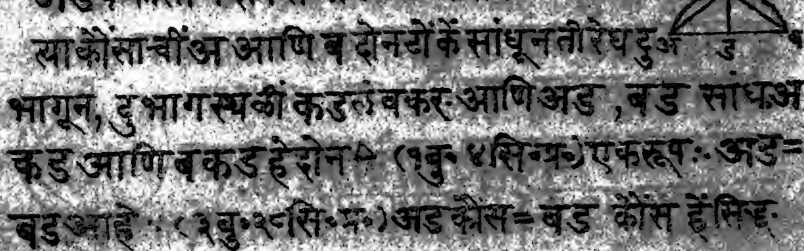 त्या कौंसाचीं अ आणि ब दोन टोंकें सांधून ती रेघ दु अ ड
भागून, दुभागस्थळीं कड लंब कर. आणि अड, बड सांध. अ
कड आणि बकड हे दोन △ (१बु॰ ४सि॰प्र॰) एकरूप ∴ अड=
बड आहे ∴ (३बु॰२८सि॰प्र॰) अड कौंस= बड कौंस हें सिद्ध.